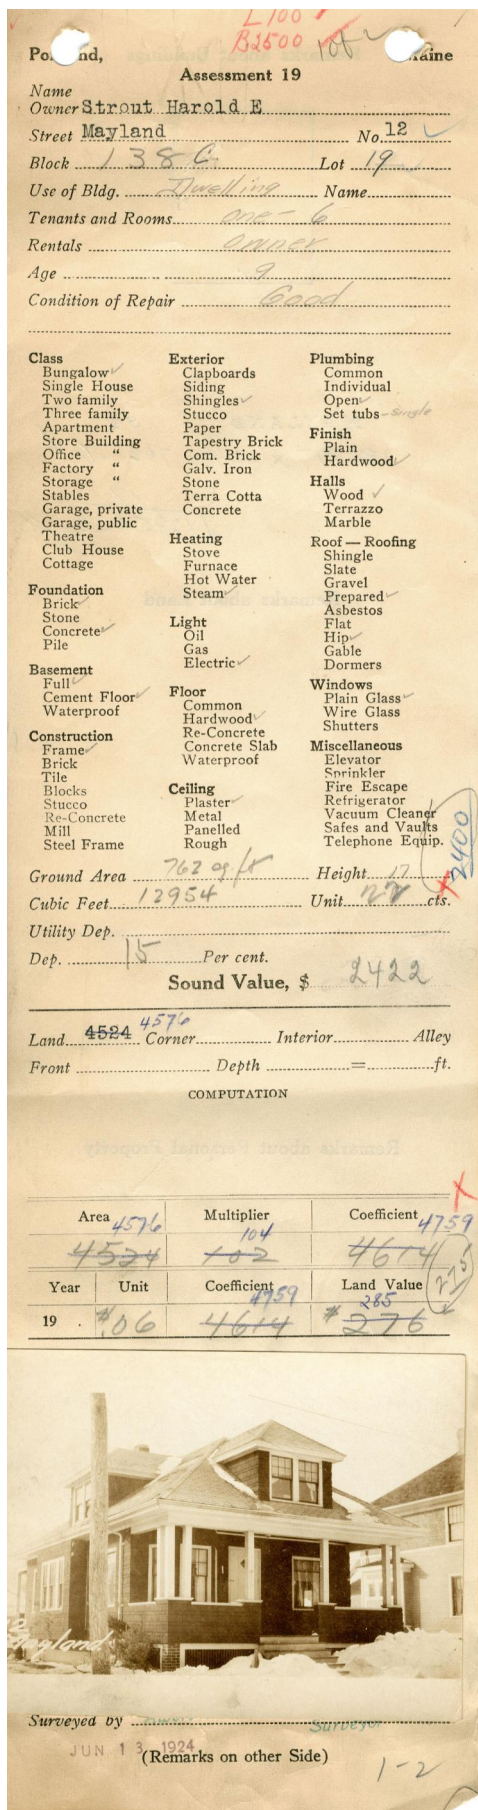 L 100
B2500
Po nd, aine
Assessment 19
Name
Owner Strout Harold E
Street Mayland No. 12 ✓
Block 138 C Lot 19
Use of Bldg. Dwelling Name
Tenants and Rooms one - 6
Rentals owner
Age 9
Condition of Repair Good
Class
Bungalow ✓
Single House
Two family
Three family
Apartment
Store Building
Office "
Factory "
Storage "
Stables
Garage, private
Garage, public
Theatre
Club House
Cottage
Foundation
Brick ✓
Stone
Concrete ✓
Pile
Basement
Full ✓
Cement Floor ✓
Waterproof
Construction
Frame ✓
Brick
Tile
Blocks
Stucco
Re-Concrete
Mill
Steel Frame
Exterior
Clapboards
Siding
Shingles ✓
Stucco
Paper
Tapestry Brick
Com. Brick
Galv. Iron
Stone
Terra Cotta
Concrete
Heating
Stove
Furnace
Hot Water
Steam ✓
Light
Oil
Gas
Electric ✓
Floor
Common
Hardwood ✓
Re-Concrete
Concrete Slab
Waterproof
Ceiling
Plaster ✓
Metal
Panelled
Rough
Plumbing
Common
Individual
Open ✓
Set tubs - single
Finish
Plain
Hardwood ✓
Halls
Wood ✓
Terrazzo
Marble
Roof — Roofing
Shingle
Slate
Gravel
Prepared ✓
Asbestos
Flat
Hip ✓
Gable
Dormers
Windows
Plain Glass ✓
Wire Glass
Shutters
Miscellaneous
Elevator
Sprinkler
Fire Escape
Refrigerator
Vacuum Cleaner
Safes and Vaults
Telephone Equip.
2400
Ground Area 762 sq. ft Height 17
Cubic Feet 12954 Unit 22 cts.
Utility Dep.
Dep. 15 Per cent.
Sound Value, $ 2422
Land 4524 4576 Corner Interior Alley
Front Depth = ft.
COMPUTATION
Area 4576 Multiplier 104 Coefficient 4759
4524 102 4614
Year Unit Coefficient 4759 Land Value 285
275
19 . $.06 4614 $276
Mayland
Surveyed by Surveyor
JUN 13 1924
(Remarks on other Side)
1-2